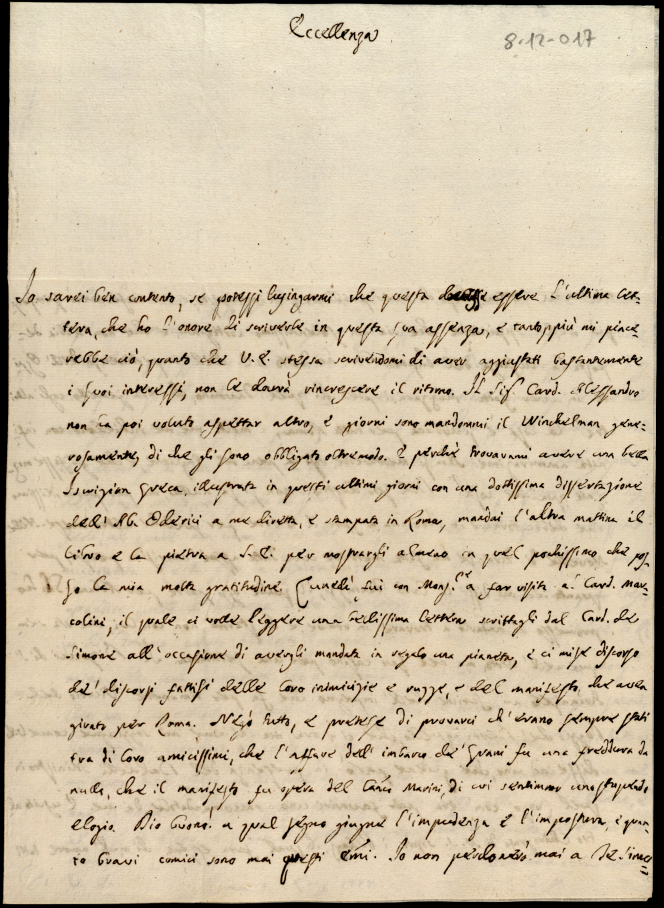 Eccellenza
8-12-017
Io sarei ben contento, se potessi lusingarmi che questa dovesse essere l'ultima let-
tera, che ho l'onore di scriverle in questa sua assenza, e tantoppiù mi piace-
rebbe ciò, quanto che V. E. stessa scrivendomi di aver aggiustati bastantemente
i suoi interessi, non le dovrà rincrescere il ritorno. Il Sig. Card. Alessandro
non ha poi voluto aspettar altro, e giorni sono mandommi il Winckelman gene-
rosamente, di che gli sono obbligato oltremodo. E perchè trovavami avere una bella
Iscrizion greca, illustrata in questi ultimi giorni con una dottissima dissertazione
dell' Ab. Oderici a me diretta, e stampata in Roma, mandai l'altra mattina il
libro e la pietra a S. E. per mostrargli almeno in quel pochissimo che pos-
so la mia molta gratitudine. Lunedì fui con Mons.re a far visita a' Card. Mar-
colini, il quale ci volle leggere una bellissima lettera scrittagli dal Card. de
Simone all' occasione di avergli mandata in regalo una pianeta, e ci mise discorso
de' discorsi fattisi delle loro inimicizie e ruzze, e del manifesto, che avea
girato per Roma. Negò tutto, e pretese di provarci ch' erano sempre stati
tra di loro amicissimi, che l'affare dell' imbarco de' grani fu una freddura da
nulla, che il manifesto fu opera del Canco Marini, di cui sentimmo uno stupendo
elogio. Dio buono! a qual segno giugne l'impudenza e l'impostura, e quan-
to bravi comici sono mai questi Emi. Io non perdonerò mai a De Simo=